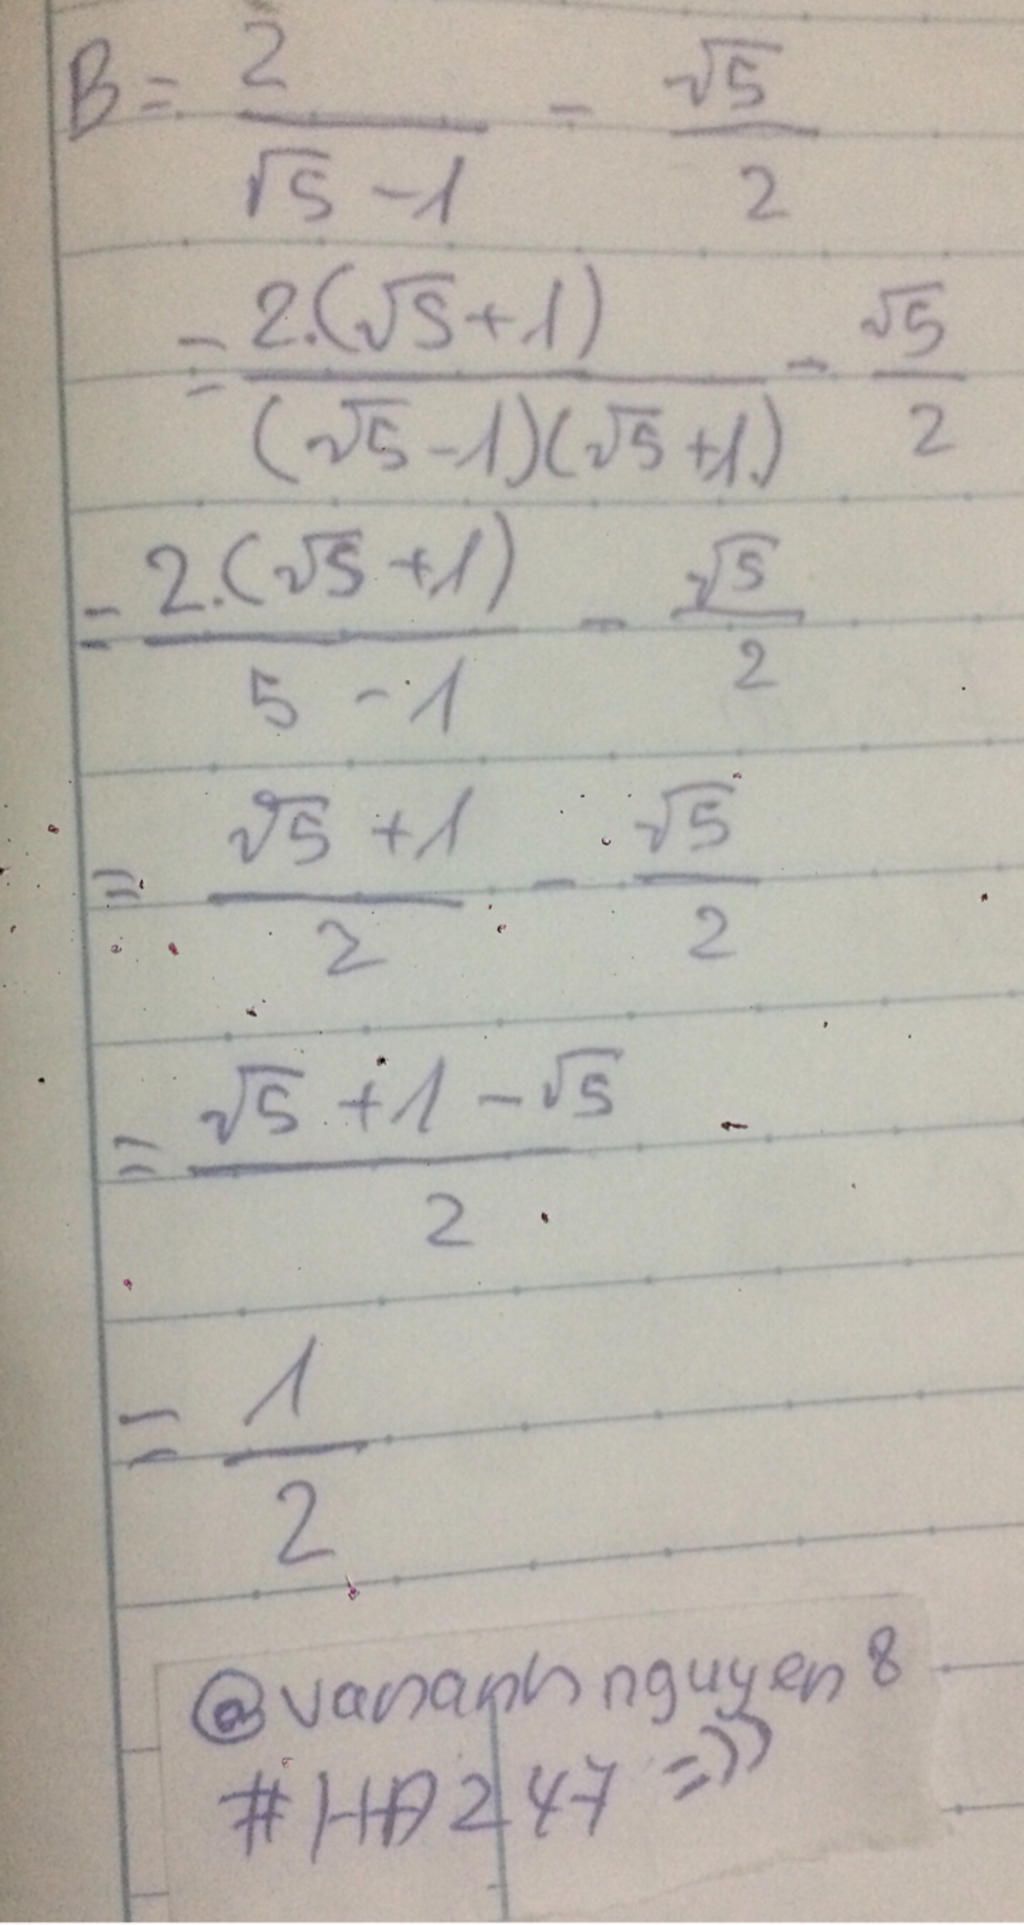 B = 2/(√5 - 1) - √5/2
= 2.(√5 + 1)/((√5 - 1)(√5 + 1)) - √5/2
= 2.(√5 + 1)/(5 - 1) - √5/2
= (√5 + 1)/2 - √5/2
= (√5 + 1 - √5)/2
= 1/2
@vananhnguyen8
#HĐ247 =))